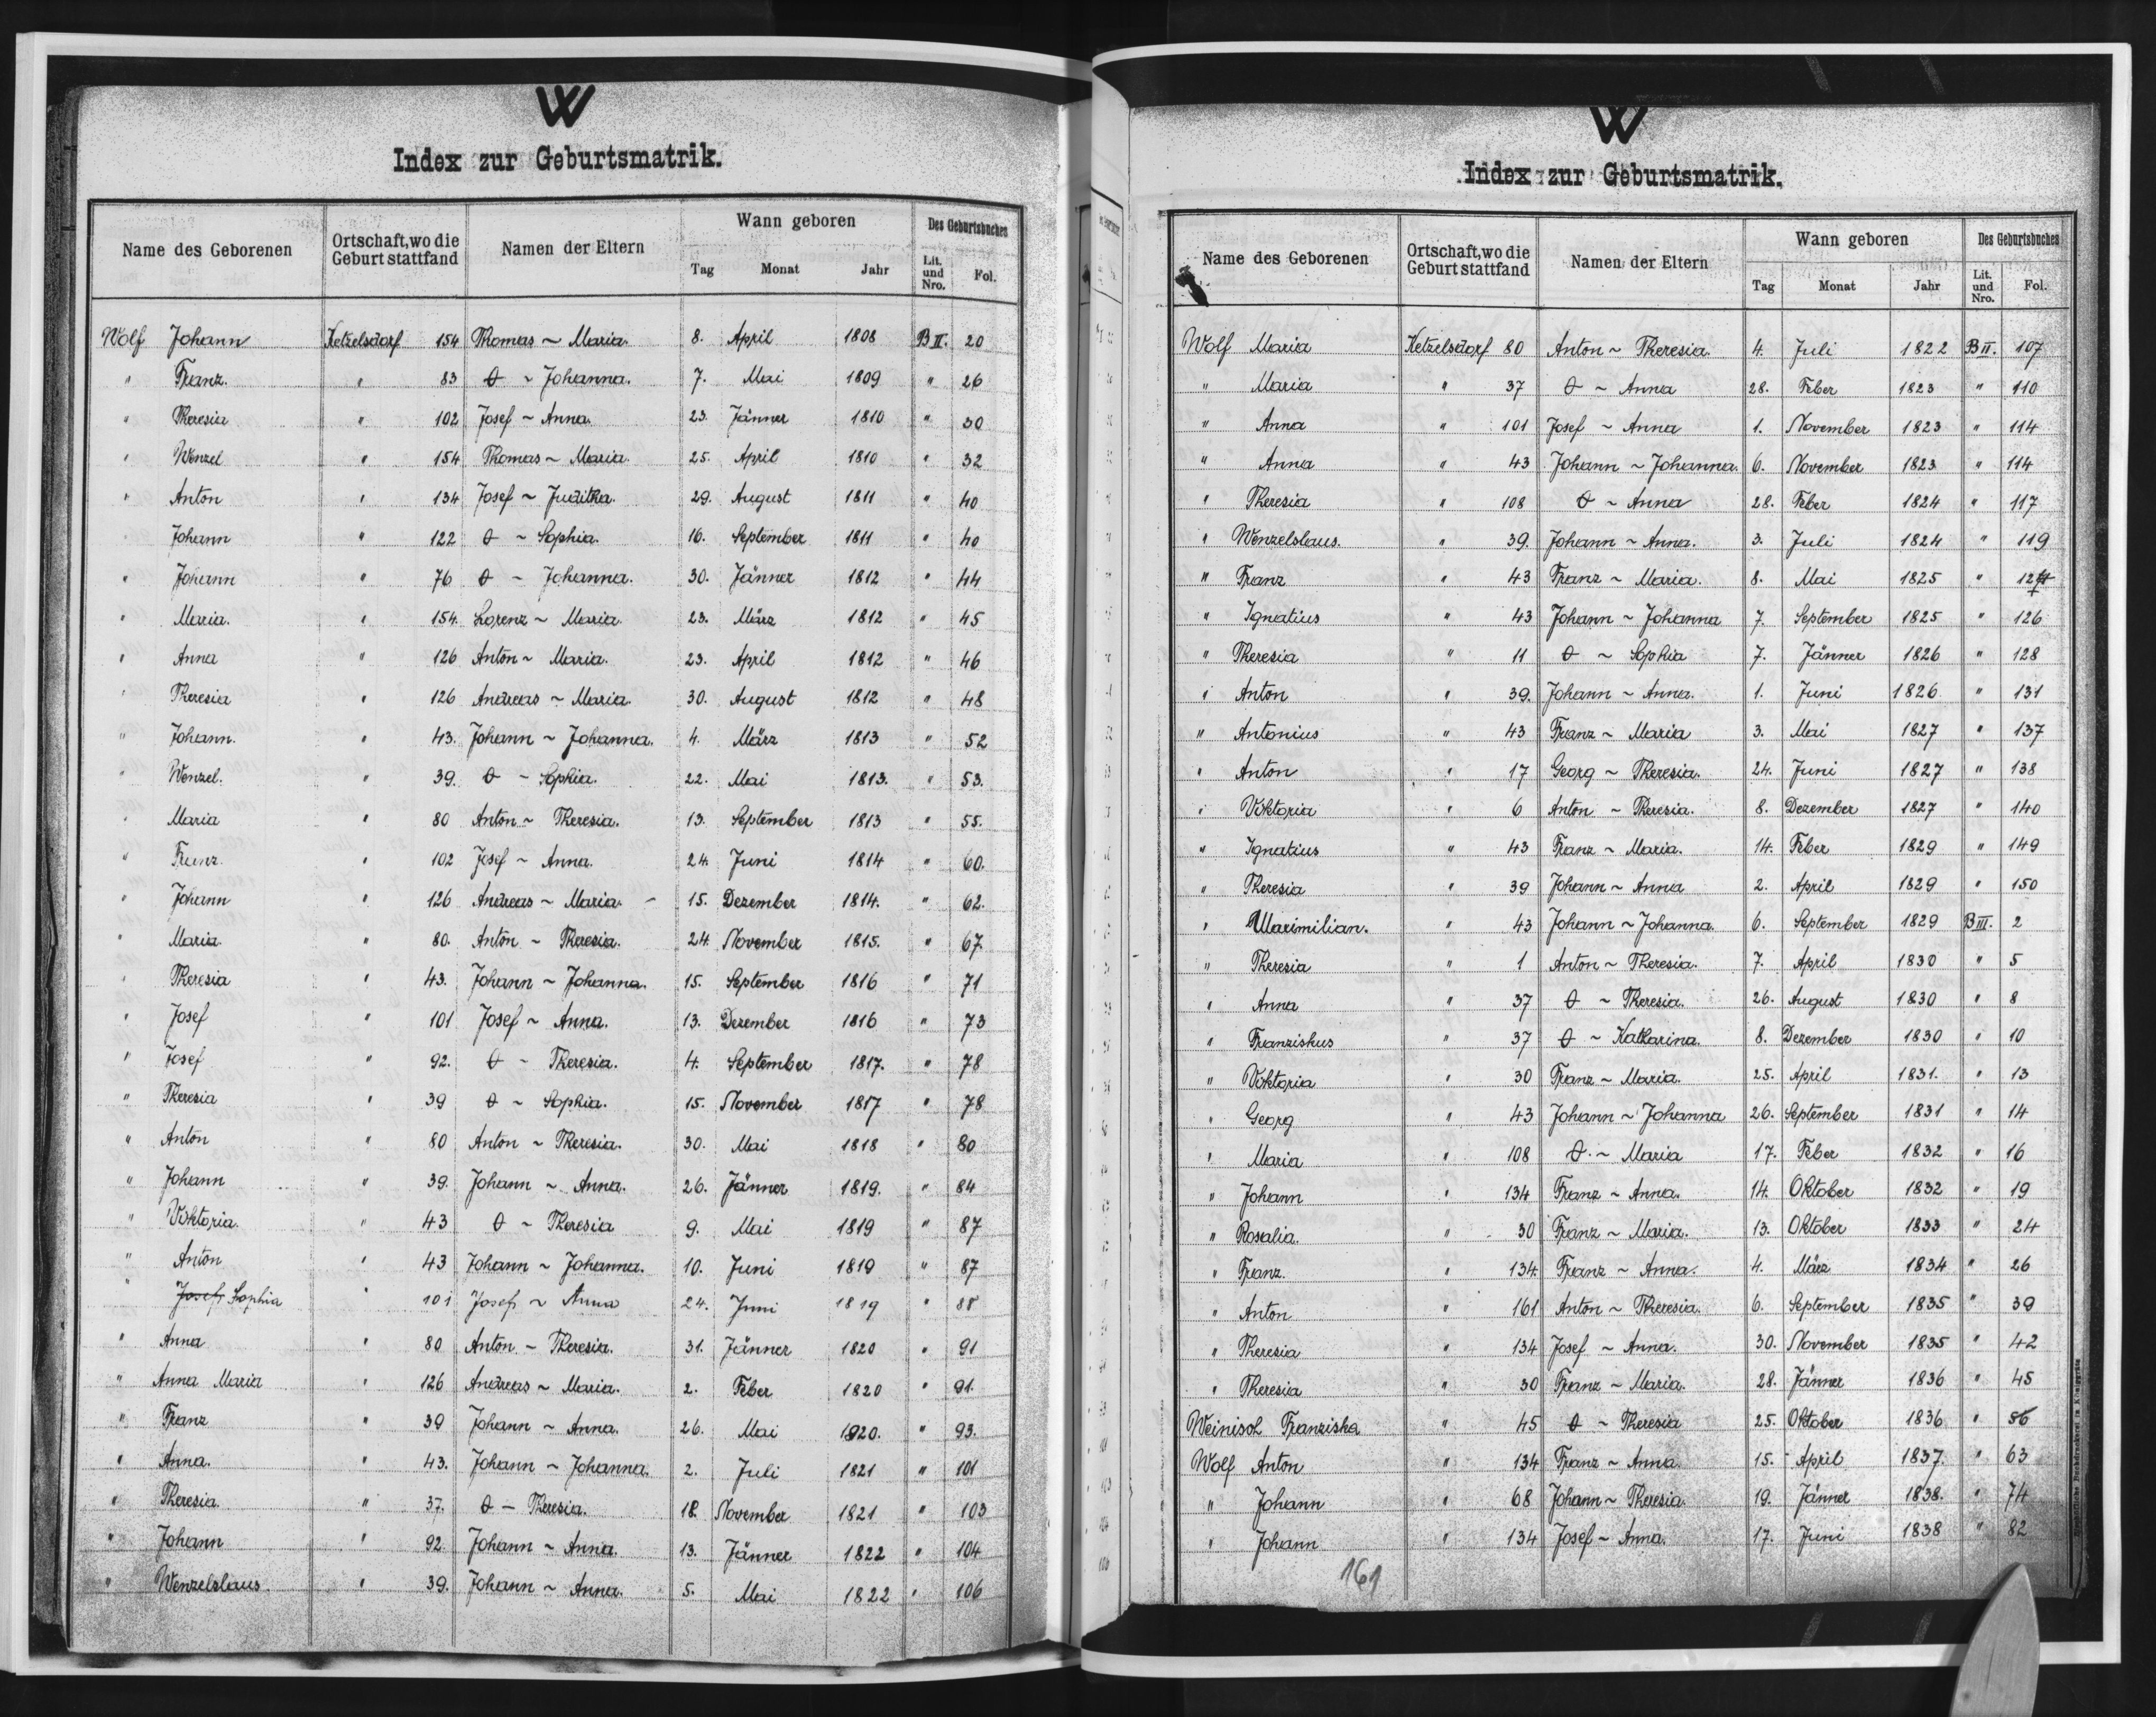 W
Index zur Geburtsmatrik.
Name des Geborenen Ortschaft, wo die Geburt stattfand Namen der Eltern Wann geboren Des Geburtsbuches
Tag Monat Jahr Lit. und Nro. Fol.
Wolf Johann Ketzelsdorf 154 Thomas ~ Maria. 8. April 1808 B II. 20
" Franz. " 83 O ~ Johanna. 7. Mai 1809 " 26
" Theresia " 102 Josef ~ Anna. 23. Jänner 1810 " 30
" Wenzel " 154 Thomas ~ Maria. 25. April 1810 " 32
" Anton " 134 Josef ~ Juditha. 29. August 1811 " 40
" Johann " 122 O ~ Sophia. 16. September 1811 " 40
" Johann " 76 O ~ Johanna. 30. Jänner 1812 " 44
" Maria. " 154. Lorenz ~ Maria. 23. März 1812 " 45
" Anna " 126 Anton ~ Maria. 23. April 1812 " 46
" Theresia " 126 Andreas ~ Maria. 30. August 1812 " 48
" Johann. " 43. Johann ~ Johanna. 4. März 1813 " 52
" Wenzel. " 39. O ~ Sophia. 22. Mai 1813. " 53.
" Maria " 80 Anton ~ Theresia. 13. September 1813 " 55.
" Franz. " 102 Josef ~ Anna. 24. Juni 1814 " 60.
" Johann " 126 Andreas ~ Maria. 15. Dezember 1814. " 62.
" Maria. " 80. Anton ~ Theresia. 24. November 1815. " 67.
" Theresia " 43. Johann ~ Johanna. 15. September 1816 " 71
" Josef " 101 Josef ~ Anna. 13. Dezember 1816 " 73
" Josef " 92. O ~ Theresia. 4. September 1817. " 78
" Theresia " 39 O ~ Sophia. 15. November 1817 " 78
" Anton " 80 Anton ~ Theresia. 30. Mai 1818 " 80
" Johann " 39. Johann ~ Anna. 26. Jänner 1819. " 84
" Viktoria. " 43 O ~ Theresia 9. Mai 1819 " 87
" Anton " 43 Johann ~ Johanna. 10. Juni 1819 " 87
" Josef Sophia " 101 Josef ~ Anna 24. Juni 1819 " 88
" Anna " 80 Anton ~ Theresia. 31. Jänner 1820 " 91
" Anna Maria " 126 Andreas ~ Maria. 2. Feber 1820 " 91.
" Franz " 39 Johann ~ Anna. 26. Mai 1820. " 93.
" Anna. " 43. Johann ~ Johanna. 2. Juli 1821 " 101
" Theresia. " 37. O ~ Theresia. 18. November 1821 " 103
" Johann " 92. Johann ~ Anna. 13. Jänner 1822 " 104
" Wenzelslaus. " 39. Johann ~ Anna. 5. Mai 1822 " 106
W
Index zur Geburtsmatrik.
Name des Geborenen Ortschaft, wo die Geburt stattfand Namen der Eltern Wann geboren Des Geburtsbuches
Tag Monat Jahr Lit. und Nro. Fol.
Wolf Maria Ketzelsdorf 80 Anton ~ Theresia. 4. Juli 1822 B II. 107
" Maria " 37 O ~ Anna 28. Feber 1823 " 110
" Anna " 101 Josef ~ Anna 1. November 1823 " 114
" Anna " 43 Johann ~ Johanna. 6. November 1823 " 114
" Theresia " 108 O ~ Anna 28. Feber 1824 " 117
" Wenzelslaus. " 39. Johann ~ Anna. 3. Juli 1824 " 119
" Franz " 43 Franz ~ Maria. 8. Mai 1825 "
" Ignatius " 43 Johann ~ Johanna 7. September 1825 " 126
" Theresia " 11 O ~ Sophia 7. Jänner 1826 " 128
" Anton " 39. Johann ~ Anna. 1. Juni 1826 " 131
" Antonius " 43 Franz ~ Maria 3. Mai 1827 " 137
" Anton " 17 Georg ~ Theresia. 24. Juni 1827 " 138
" Viktoria " 6 Anton ~ Theresia. 8. Dezember 1827 " 140
" Ignatius " 43 Franz ~ Maria. 14. Feber 1829 " 149
" Theresia " 39 Johann ~ Anna 2. April 1829 " 150
" Maximilian. " 43 Johann ~ Johanna. 6. September 1829 B III. 2
" Theresia " 1 Anton ~ Theresia. 7. April 1830 " 5
" Anna " 37 O ~ Theresia. 26. August 1830 " 8
" Franziskus " 37 O ~ Katharina. 8. Dezember 1830 " 10
" Viktoria " 30 Franz ~ Maria. 25. April 1831. " 13
" Georg " 43 Johann ~ Johanna 26. September 1831 " 14
" Maria " 108 O ~ Maria 17. Feber 1832 " 16
" Johann " 134 Franz ~ Anna. 14. Oktober 1832 " 19
" Rosalia. " 30 Franz ~ Maria. 13. Oktober 1833 " 24
" Franz. " 134. Franz ~ Anna. 4. März 1834 " 26
" Anton " 161 Anton ~ Theresia. 6. September 1835 " 39
" Theresia " 134 Josef ~ Anna. 30. November 1835 " 42
" Theresia " 30 Franz ~ Maria. 28. Jänner 1836 " 45
Weinisch Franziska " 45 O ~ Theresia 25. Oktober 1836 " 56
Wolf Anton " 134 Franz ~ Anna. 15. April 1837. " 63
" Johann " 68 Johann ~ Theresia. 19. Jänner 1838. " 74
" Johann " 134 Josef ~ Anna. 17. Juni 1838 " 82
161